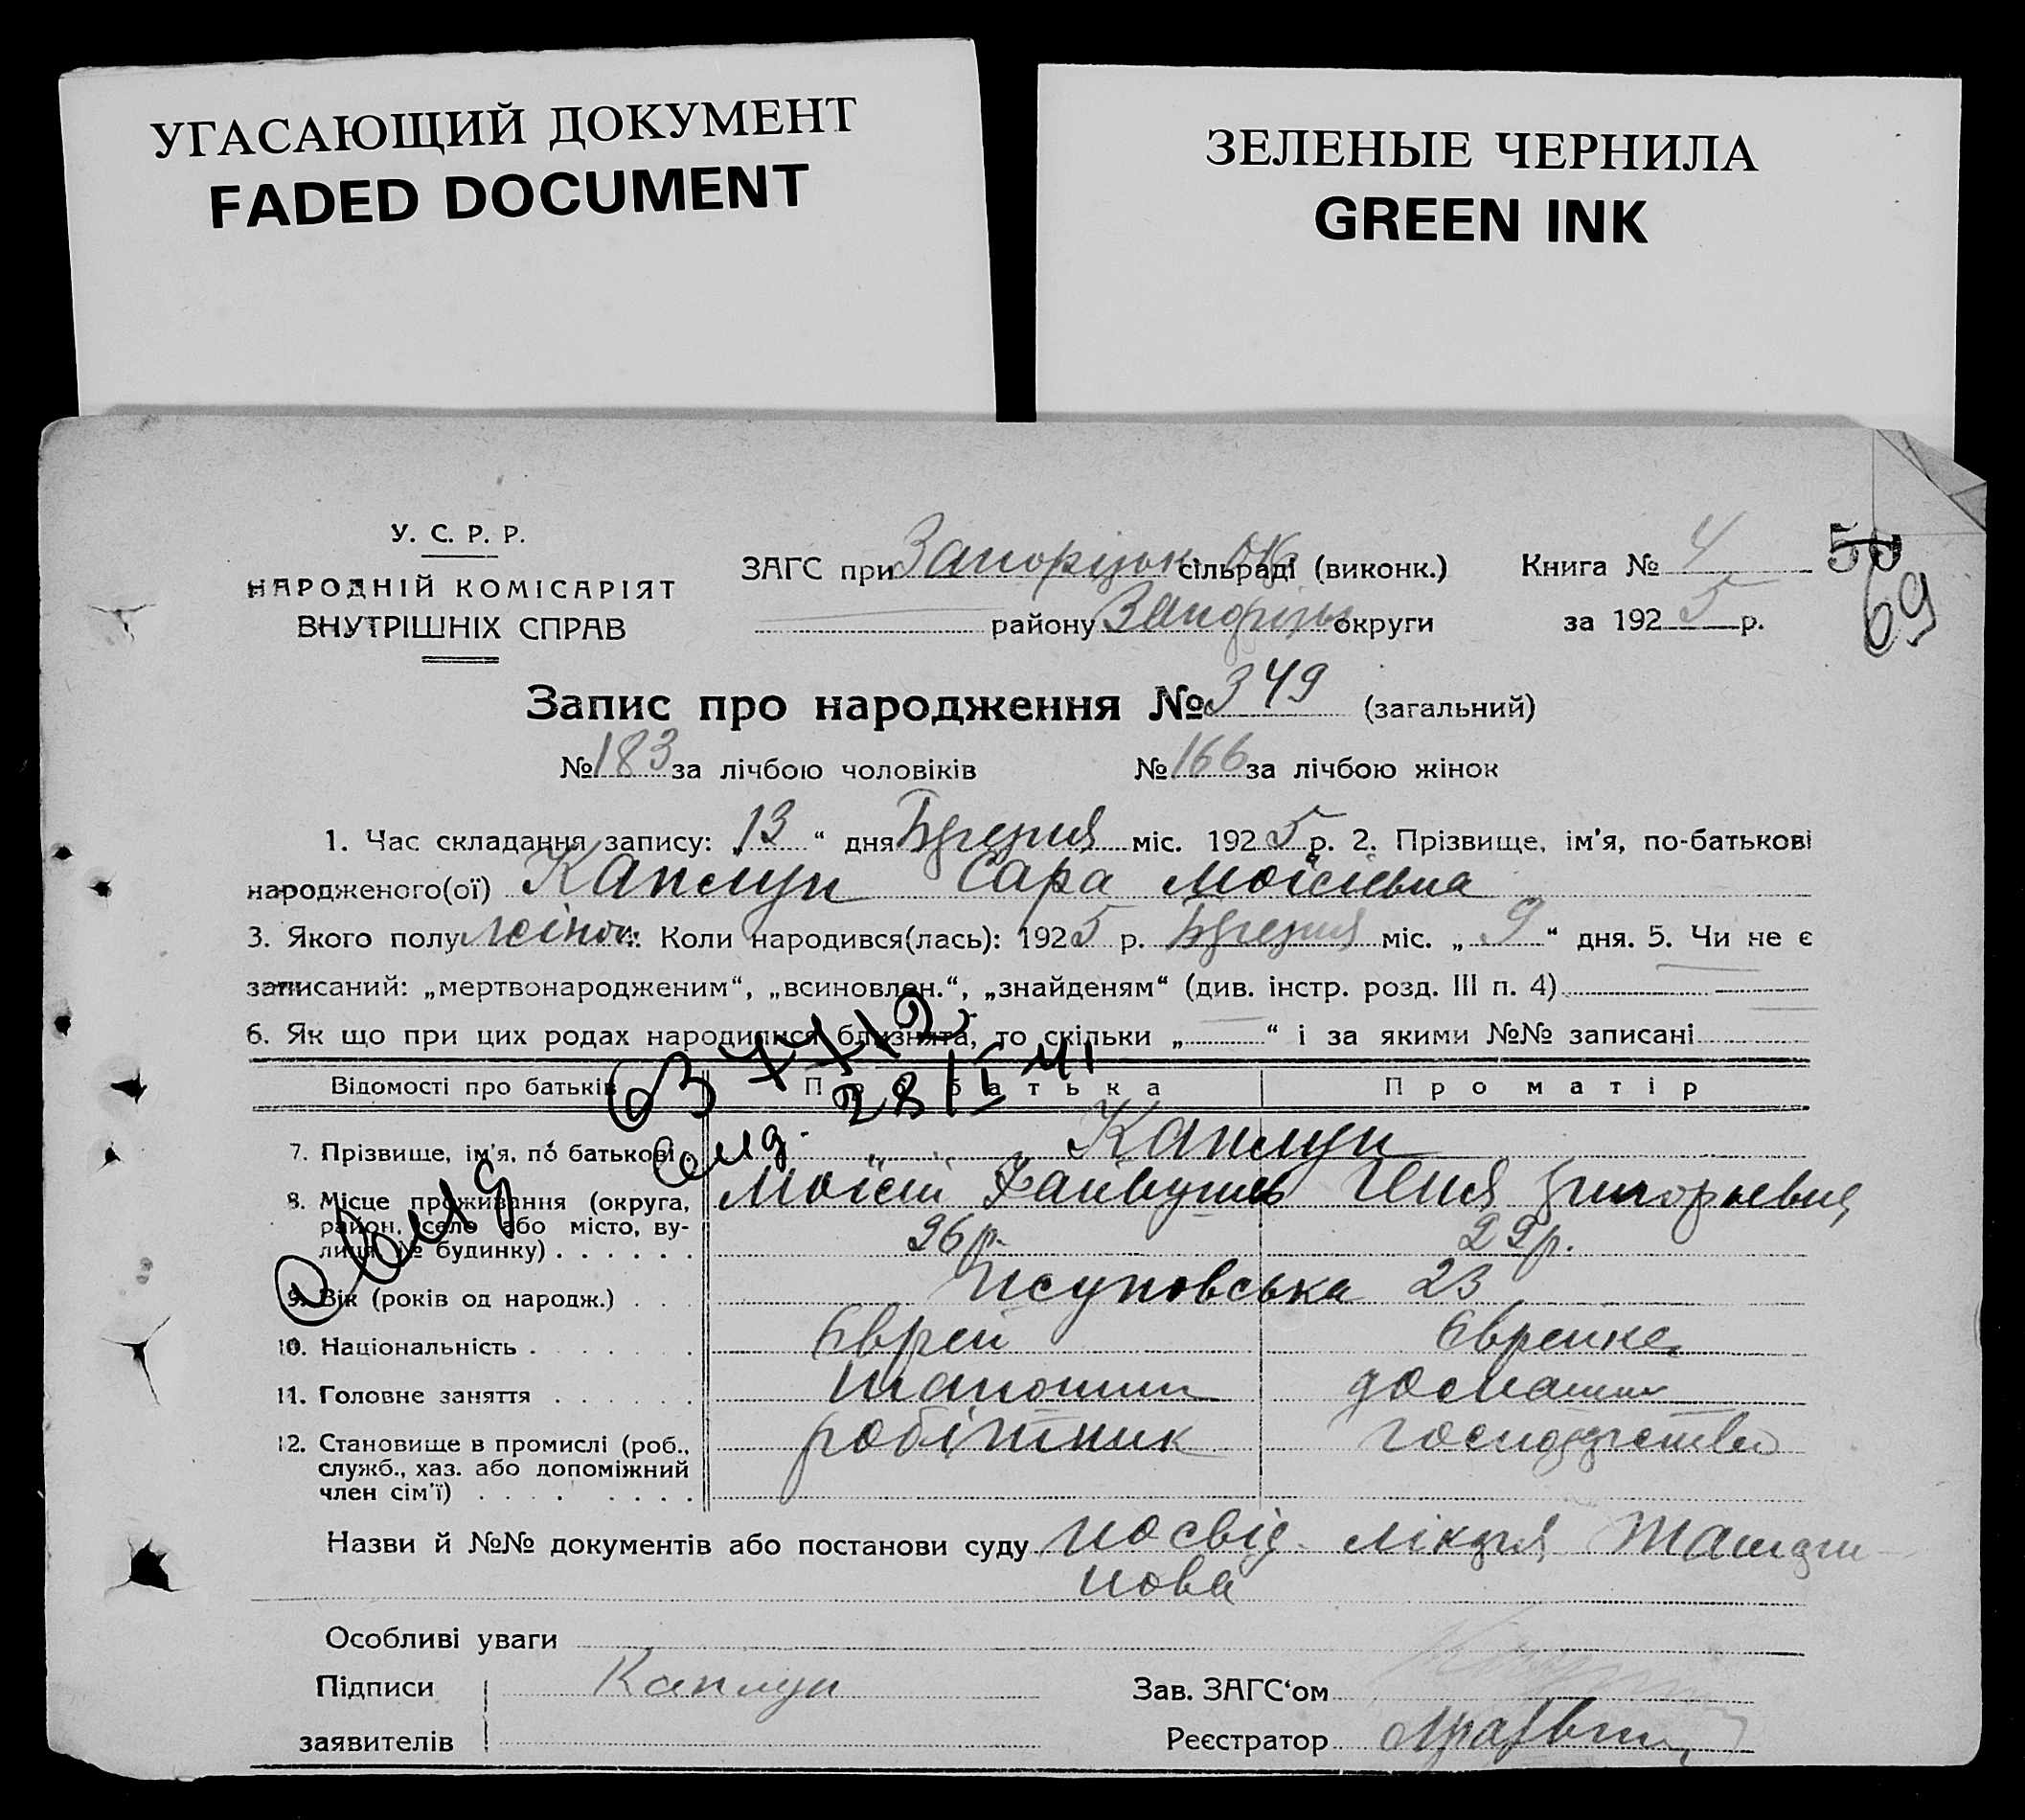 УГАСАЮЩИЙ ДОКУМЕНТ
FADED DOCUMENT
ЗЕЛЕНЫЕ ЧЕРНИЛА
GREEN INK
У. С. Р. Р.
НАРОДНІЙ КОМІСАРІЯТ
ВНУТРІШНІХ СПРАВ
ЗАГС при Запорізьк. сільраді (виконк.)
району Запоріз округи
Книга № 4
за 1925 р.
50
69
Запис про народження № 349 (загальний)
№ 183 за лічбою чоловіків № 166 за лічбою жінок
1. Час складання запису: 13 “ дня Березня міс. 1925 р. 2. Прізвище, ім'я, по-батькові
народженого(ої) Каплун Сара Моїсієвна
3. Якого полу жіноч. Коли народився(лась): 1925 р. Березня міс. „ 9 “ дня. 5. Чи не є
записаний: „мертвонародженим“, „всиновлен.“, „знайденям“ (див. інстр. розд. III п. 4)
6. Як що при цих родах народилися близнята, то скільки „ “ і за якими №№ записані
28/I 41
Відомості про батьків Про батька Про матір
7. Прізвище, ім'я, по батькові Каплун
Моїсій Файвушев Геня Григорьевна
8. Місце проживання (округа,
район, село або місто, ву-
лиця, № будинку) 26 р. 22 р.
9. Вік (років од народж.) 23
10. Національність Єврей Єврейка
11. Головне заняття домашнє
12. Становище в промислі (роб., робітник господарство
служб., хаз. або допоміжний
член сім'ї)
Назви й №№ документів або постанови суду посвід. лікаря
нова
Особливі уваги
Підписи Каплун Зав. ЗАГС'ом
заявителів Реєстратор